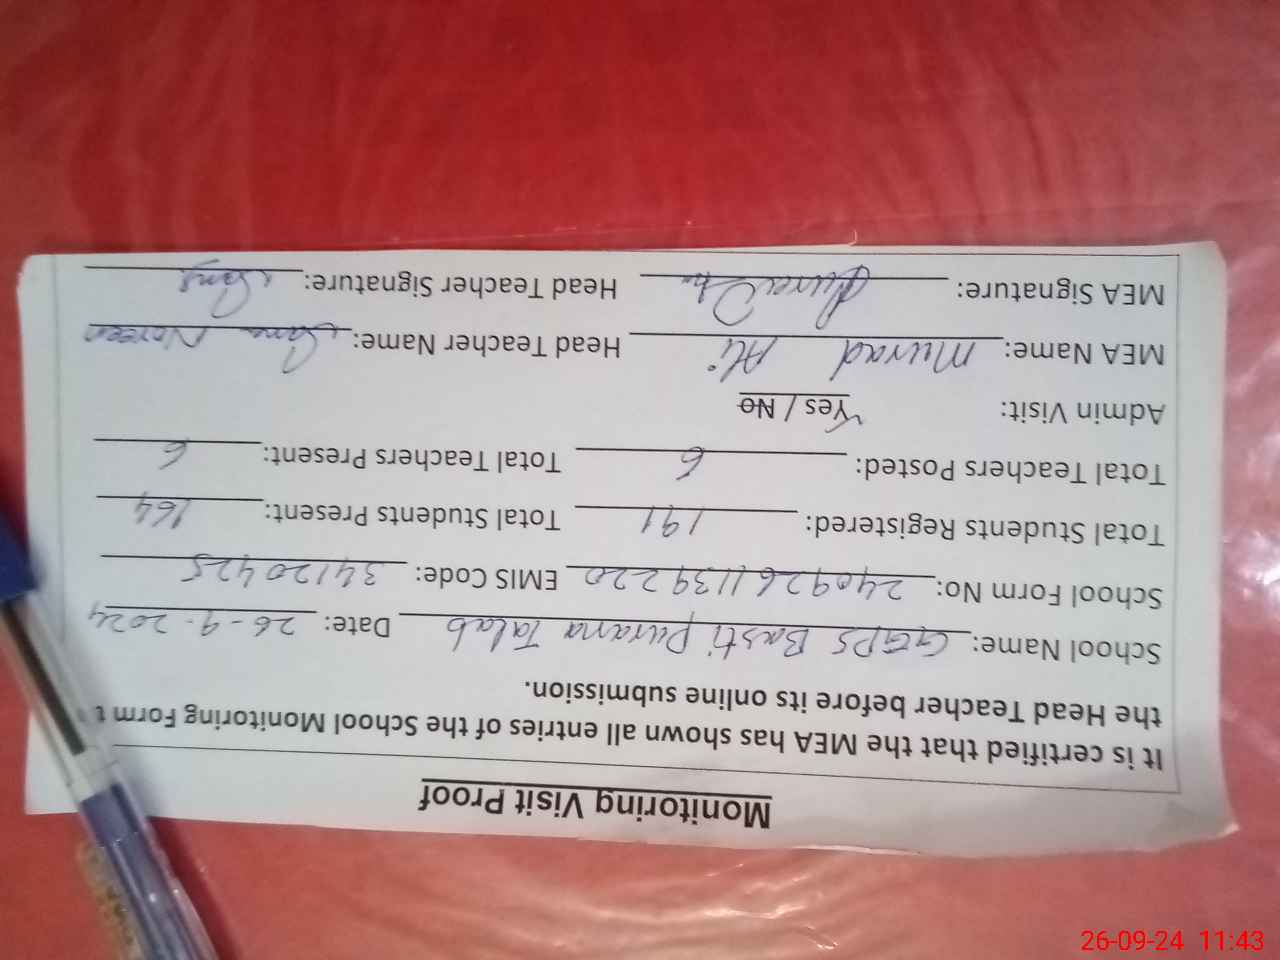 Monitoring Visit Proof
It is certified that the MEA has shown all entries of the School Monitoring Form t
the Head Teacher before its online submission.
School Name: GGPS Basti Purana Talab Date: 26-9-2024
School Form No: 2409261139220 EMIS Code: 34120425
Total Students Registered: 191 Total Students Present: 164
Total Teachers Posted: 6 Total Teachers Present: 6
Admin Visit: Yes / No
MEA Name: Murad Ali Head Teacher Name: Sana Noreen
MEA Signature: Head Teacher Signature:
26-09-24 11:43